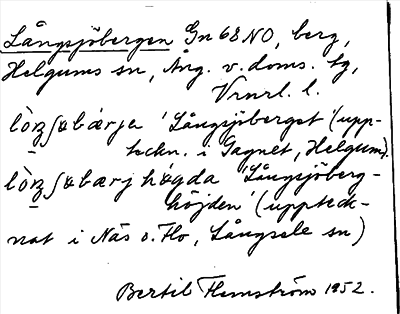 Långsjöbergen Gn 68 NO, berg,
Helgums sn, Ång. v. doms. tg,
Vrnrl. l.
lòŋʃøbærja 'Långsjöberget' (upp-
teckn. i Gagnet, Helgum).
lòŋʃøbærjhøgda 'Långsjöberg-
höjden' (uppteck-
nat i Näs o. Flo, Långsele sn)
Bertil Flemström 1952.